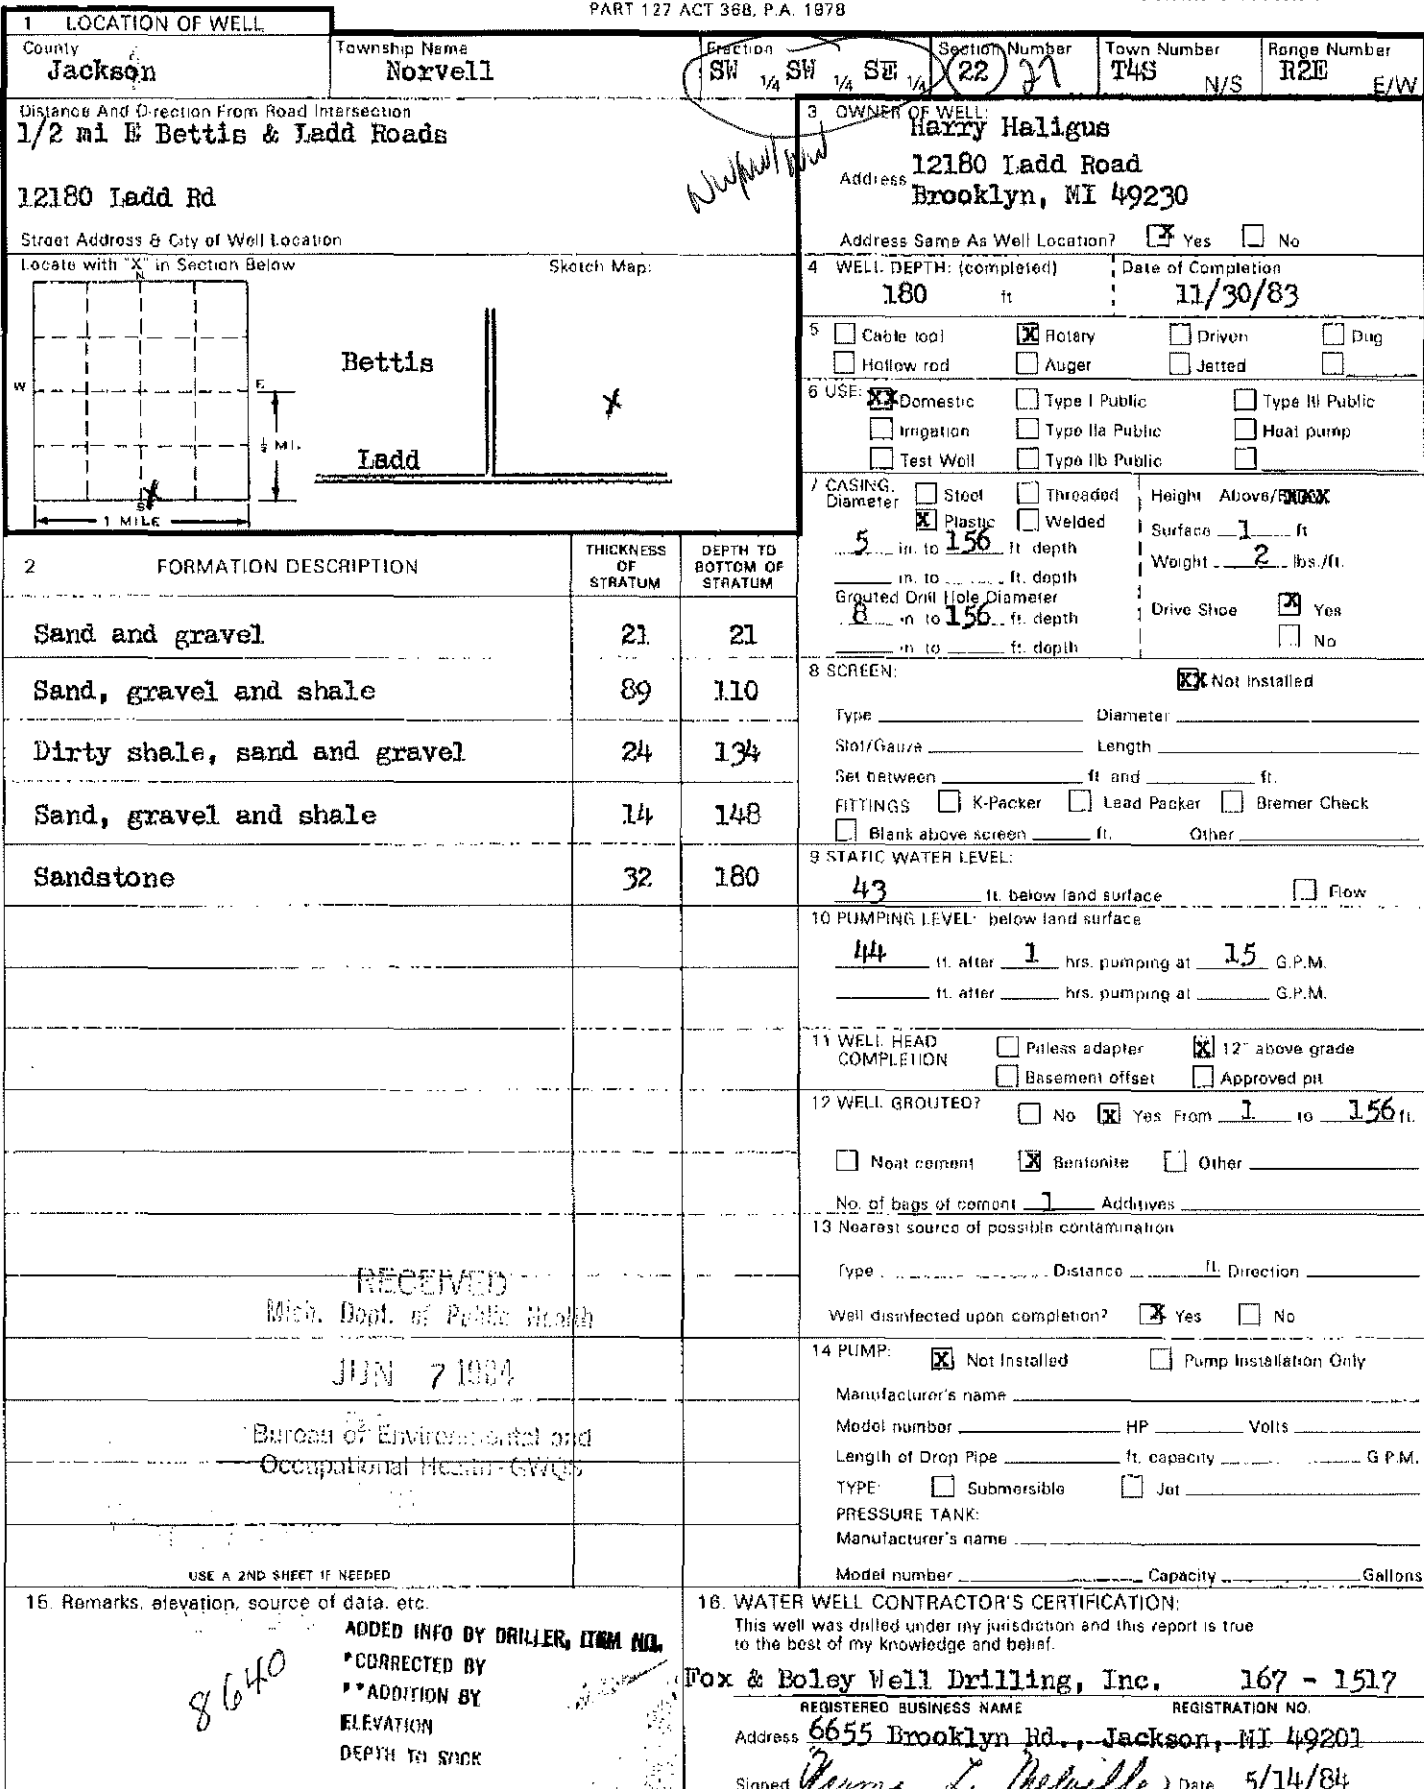 PART 127 ACT 368, P.A. 1978
1 LOCATION OF WELL
County
Jackson
Township Name
Norvell
Fraction
SW 1/4 SW 1/4 SE 1/4
Section Number
22 27
Town Number
T4S N/S
Range Number
R2E E/W
Distance And Direction From Road Intersection
1/2 mi E Bettis & Ladd Roads
12180 Ladd Rd
Street Address & City of Well Location
Locate with "X" in Section Below
Sketch Map:
N
W
E
S
X
1/2 MI.
1 MILE
Bettis
X
Ladd
3 OWNER OF WELL:
Harry Haligus
Address 12180 Ladd Road
Brooklyn, MI 49230
Address Same As Well Location? X Yes No
4 WELL DEPTH: (completed)
180 ft
Date of Completion
11/30/83
5 Cable tool X Rotary Driven Dug
Hollow rod Auger Jetted
6 USE: XX Domestic Type I Public Type III Public
Irrigation Type IIa Public Heat pump
Test Well Type IIb Public
7 CASING: Steel Threaded
Diameter X Plastic Welded
5 in. to 156 ft. depth
in. to ft. depth
Grouted Drill Hole Diameter
8 in to 156 ft. depth
in to ft. depth
Height Above/
Surface 1 ft
Weight 2 lbs./ft.
Drive Shoe X Yes
No
2 FORMATION DESCRIPTION
THICKNESS OF STRATUM
DEPTH TO BOTTOM OF STRATUM
Sand and gravel 21 21
Sand, gravel and shale 89 110
Dirty shale, sand and gravel 24 134
Sand, gravel and shale 14 148
Sandstone 32 180
8 SCREEN: XX Not Installed
Type Diameter
Slot/Gauze Length
Set between ft and ft.
FITTINGS K-Packer Lead Packer Bremer Check
Blank above screen ft. Other
9 STATIC WATER LEVEL:
43 ft. below land surface Flow
10 PUMPING LEVEL: below land surface
44 ft. after 1 hrs. pumping at 15 G.P.M.
ft. after hrs. pumping at G.P.M.
11 WELL HEAD COMPLETION Pitless adapter X 12" above grade
Basement offset Approved pit
12 WELL GROUTED? No X Yes From 1 to 156 ft.
Neat cement X Bentonite Other
No. of bags of cement 1 Additives
13 Nearest source of possible contamination
Type Distance ft. Direction
Well disinfected upon completion? X Yes No
14 PUMP: X Not Installed Pump Installation Only
Manufacturer's name
Model number HP Volts
Length of Drop Pipe ft. capacity G.P.M.
TYPE: Submersible Jet
PRESSURE TANK:
Manufacturer's name
Model number Capacity Gallons
RECEIVED
Mich. Dept. of Public Health
JUN 7 1984
Bureau of Environmental and
Occupational Health-GWQS
USE A 2ND SHEET IF NEEDED
15. Remarks, elevation, source of data, etc.
8640
ADDED INFO BY DRILLER, ITEM NO.
*CORRECTED BY
**ADDITION BY
ELEVATION
DEPTH TO ROCK
16. WATER WELL CONTRACTOR'S CERTIFICATION:
This well was drilled under my jurisdiction and this report is true
to the best of my knowledge and belief.
Fox & Boley Well Drilling, Inc. 167 - 1517
REGISTERED BUSINESS NAME REGISTRATION NO.
Address 6655 Brooklyn Rd., Jackson, MI 49201
Signed Date 5/14/84